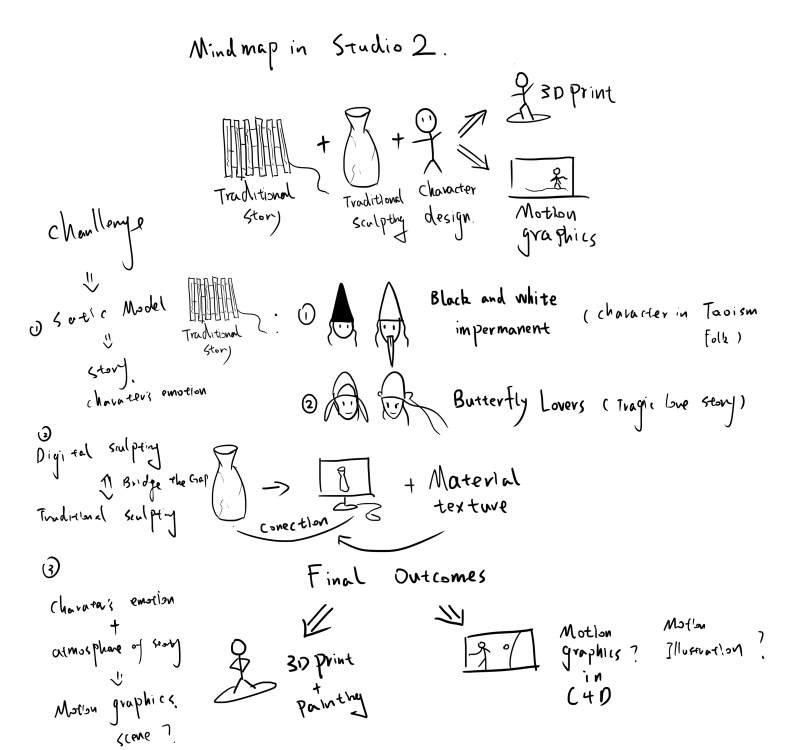 Mindmap in Studio 2.
Traditional
story
+
Traditional
sculpting
+
Character
design.
3D print
Motion
graphics
Challenge
① Satic Model
story.
charater's emotion
Traditional
story
:
① Black and white
impermanent
( character in Taoism
folk )
② Butterfly Lovers ( Tragic love story )
②
Digital sculpting
Bridge the Gap
Traditional sculpting
Conection
+ Material
texture
③
Charater's emotion
+
atmosphere of story
Motion graphics.
scene ?
Final Outcomes
3D print
+
painting
Motion
graphics ?
in
C4D
Motion
Illustration ?